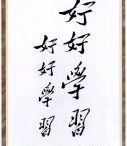 好好學習
好好學習